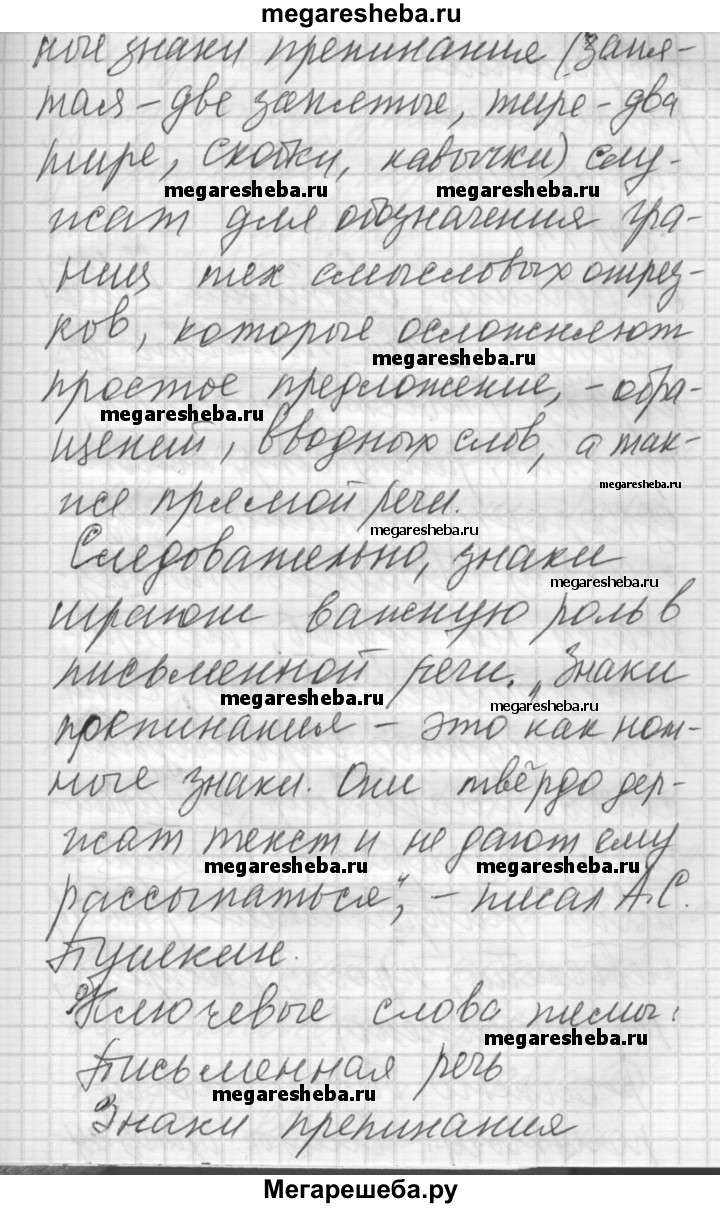 megaresheba.ru
ные знаки препинание (запя-
тая – две запятые, тире – два
тире, скобки, кавычки) слу-
megaresheba.ru megaresheba.ru
жат для обозначения гра-
ниц тех смысловых отрез-
ков, которые осложняют
megaresheba.ru
простое предложение, – обра-
megaresheba.ru
щений, вводных слов, а так-
megaresheba.ru
же прямой речи.
megaresheba.ru
Следовательно, знаки
megaresheba.ru
играют важную роль в
письменной речи. „Знаки
megaresheba.ru megaresheba.ru
препинания – это как нот-
ные знаки. Они твёрдо дер-
жат текст и не дают ему
megaresheba.ru megaresheba.ru
рассыпаться“, – писал А.С.
Пушкин.
Ключевые слова темы:
megaresheba.ru
Письменная речь
megaresheba.ru
Знаки препинания
Мегарешеба.ру